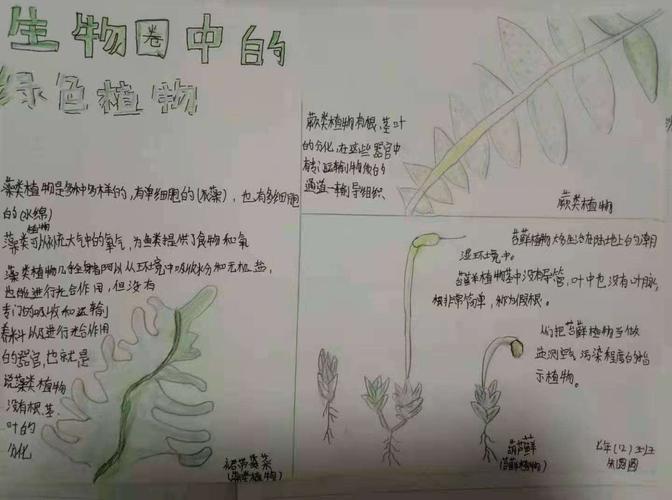 生物圈中的
绿色植物
藻类植物是多种多样的,有单细胞的(衣藻),也有多细胞
的(水绵)
植物
藻类可以补充大气中的氧气,为鱼类提供了食物和氧
藻类植物几乎全身都可以从环境中吸收水分和无机盐,
也能进行光合作用,但没有
专门的吸收和运输
养料以及进行光合作用
的器官,也就是
说藻类植物
没有根、茎、
叶的
分化
裙带菜
(藻类植物)
蕨类植物有根、茎、叶
的分化,在这些器官中
有专门运输物质的
通道—输导组织
蕨类植物
苔藓植物大多生活在陆地上的潮
湿环境中。
苔藓植物茎中没有导管,叶中也没有叶脉,
根非常简单,称为假根。
人们把苔藓植物当做
监测空气污染程度的指
示植物。
葫芦藓
(苔藓植物)
七年(12)
朱圆圆